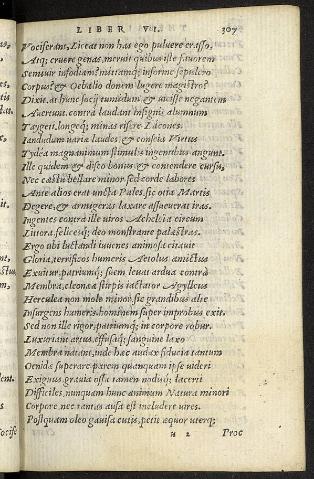 LIBER VI. 307
Vociferant, Liceat non has ego puluere crasso,
Atq; cruore genas, meruit quibus ille fauorem
Semiuir infodiam? mittamq; informe sepulcro
Corpus? & Oebalio donem lugere magistro?
Dixit. at hunc socij tumidum & uicisse negantem
Auertunt. contra laudant insignis alumnum
Taygeti, longeq; minas risere Lacones.
Iandudum uariæ laudes, & conscia Virtus
Tydea magnanimum stimulis ingentibus angunt.
Ille quidem & disco bonus, & contendere cursu,
Nec cæstu bellare minor sed corde labores
Ante alios erat uncta Pales. sic otia Martis
Degere, & armigeras laxare assueuerat iras.
Ingentes contra ille uiros Acheloia circum
Littora, felicesq; deo monstrante palæstras.
Ergo ubi luctandi iuuenes animosa citauit
Gloria, terrificos humeris Aetolus amictus
Exuitur, patriumq; suem. leuat ardua contrà
Membra, cleoneæ stirpis iactator Agylleus
Herculea non mole minor. sic grandibus altè
Insurgens humeris hominem super improbus exit.
Sed non ille rigor, patriumq; in corpore robur.
Luxuriant artus, effusaq; sanguine laxo
Membra natant, unde hæc audax fiducia tantum
Oenidæ superare parem. quanquam ipse uideri
Exiguus, grauia ossa tamen nodisq; lacerti
Difficiles, nunquam hunc animum Natura minori
Corpore nec tantas ausa est includere uires.
Postquam oleo gauisa cutis, petit æquor uterq;
H 2 Proc